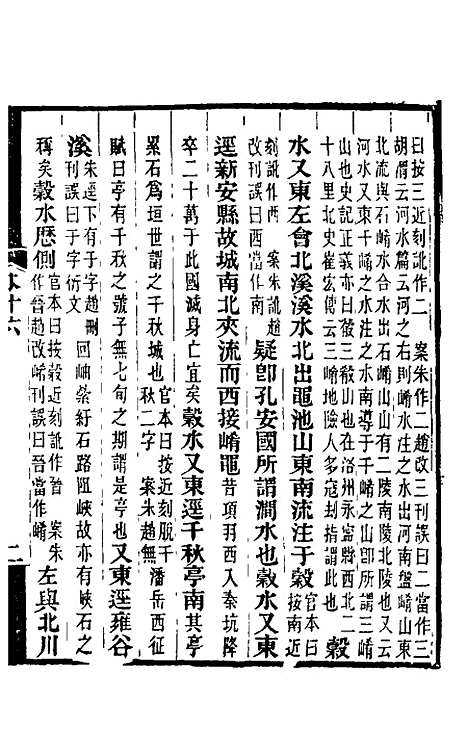 曰按三近刻訛作二　案朱作二趙改三刊誤曰二當作三
胡㥽云河水篇云河之右則崤水注之水出河南盤崤山東
北流與石崤水合水出石崤山山有二陵南陵北陵也又云
河水又東千崤之水注之水南導于千崤之山所謂三崤
山也史記正義亦曰三殽山也在洛州永寧縣西北二
十八里北史崔宏傳云三崤地險人多寇刦指謂此也　穀
水又東左會北溪溪水北出黽池山東南流注于穀官本曰按南近
刻訛作西　案朱訛趙改刊誤曰西當作南　疑卽孔安國所謂澗水也穀水又東
逕新安縣故城南北夾流而西接崤黽昔項羽西入秦坑降
卒二十萬于此國滅身亡宜矣穀水又東逕千秋亭南其亭
累石爲垣世謂之千秋城也官本曰按近刻脱千秋二字　案朱趙無　潘岳西征
賦曰亭有千秋之號子無七旬之期謂是亭也又東逕雍谷
溪朱逕下有于字趙刪刊誤曰于字衍文　回岫縈紆石路阻峽故亦有峽石之
稱矣穀水歷側官本曰按穀近刻訛作晉　案朱作晉趙改崤刊誤曰晉當作崤　左與北川
卷十六
二